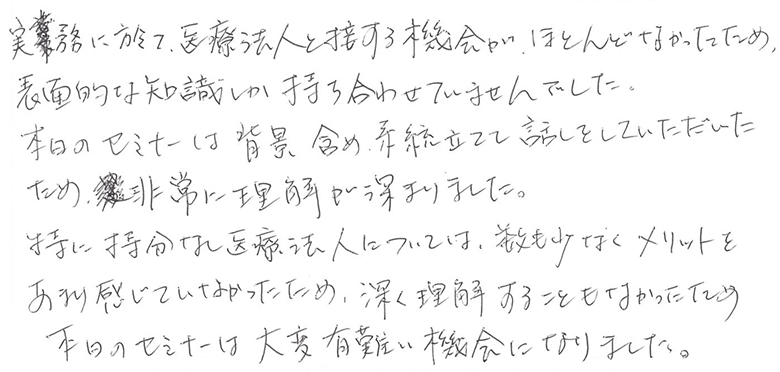 実務に於て、医療法人と接する機会が、ほとんどなかったため、
表面的な知識しか持ち合わせていませんでした。
本日のセミナーは背景含め、系統立てて話しをしていただいた
ため、非常に理解が深まりました。
特に持分なし医療法人については、数も少なくメリットを
あまり感じていなかったため、深く理解することもなかったため
本日のセミナーは大変有難い機会になりました。